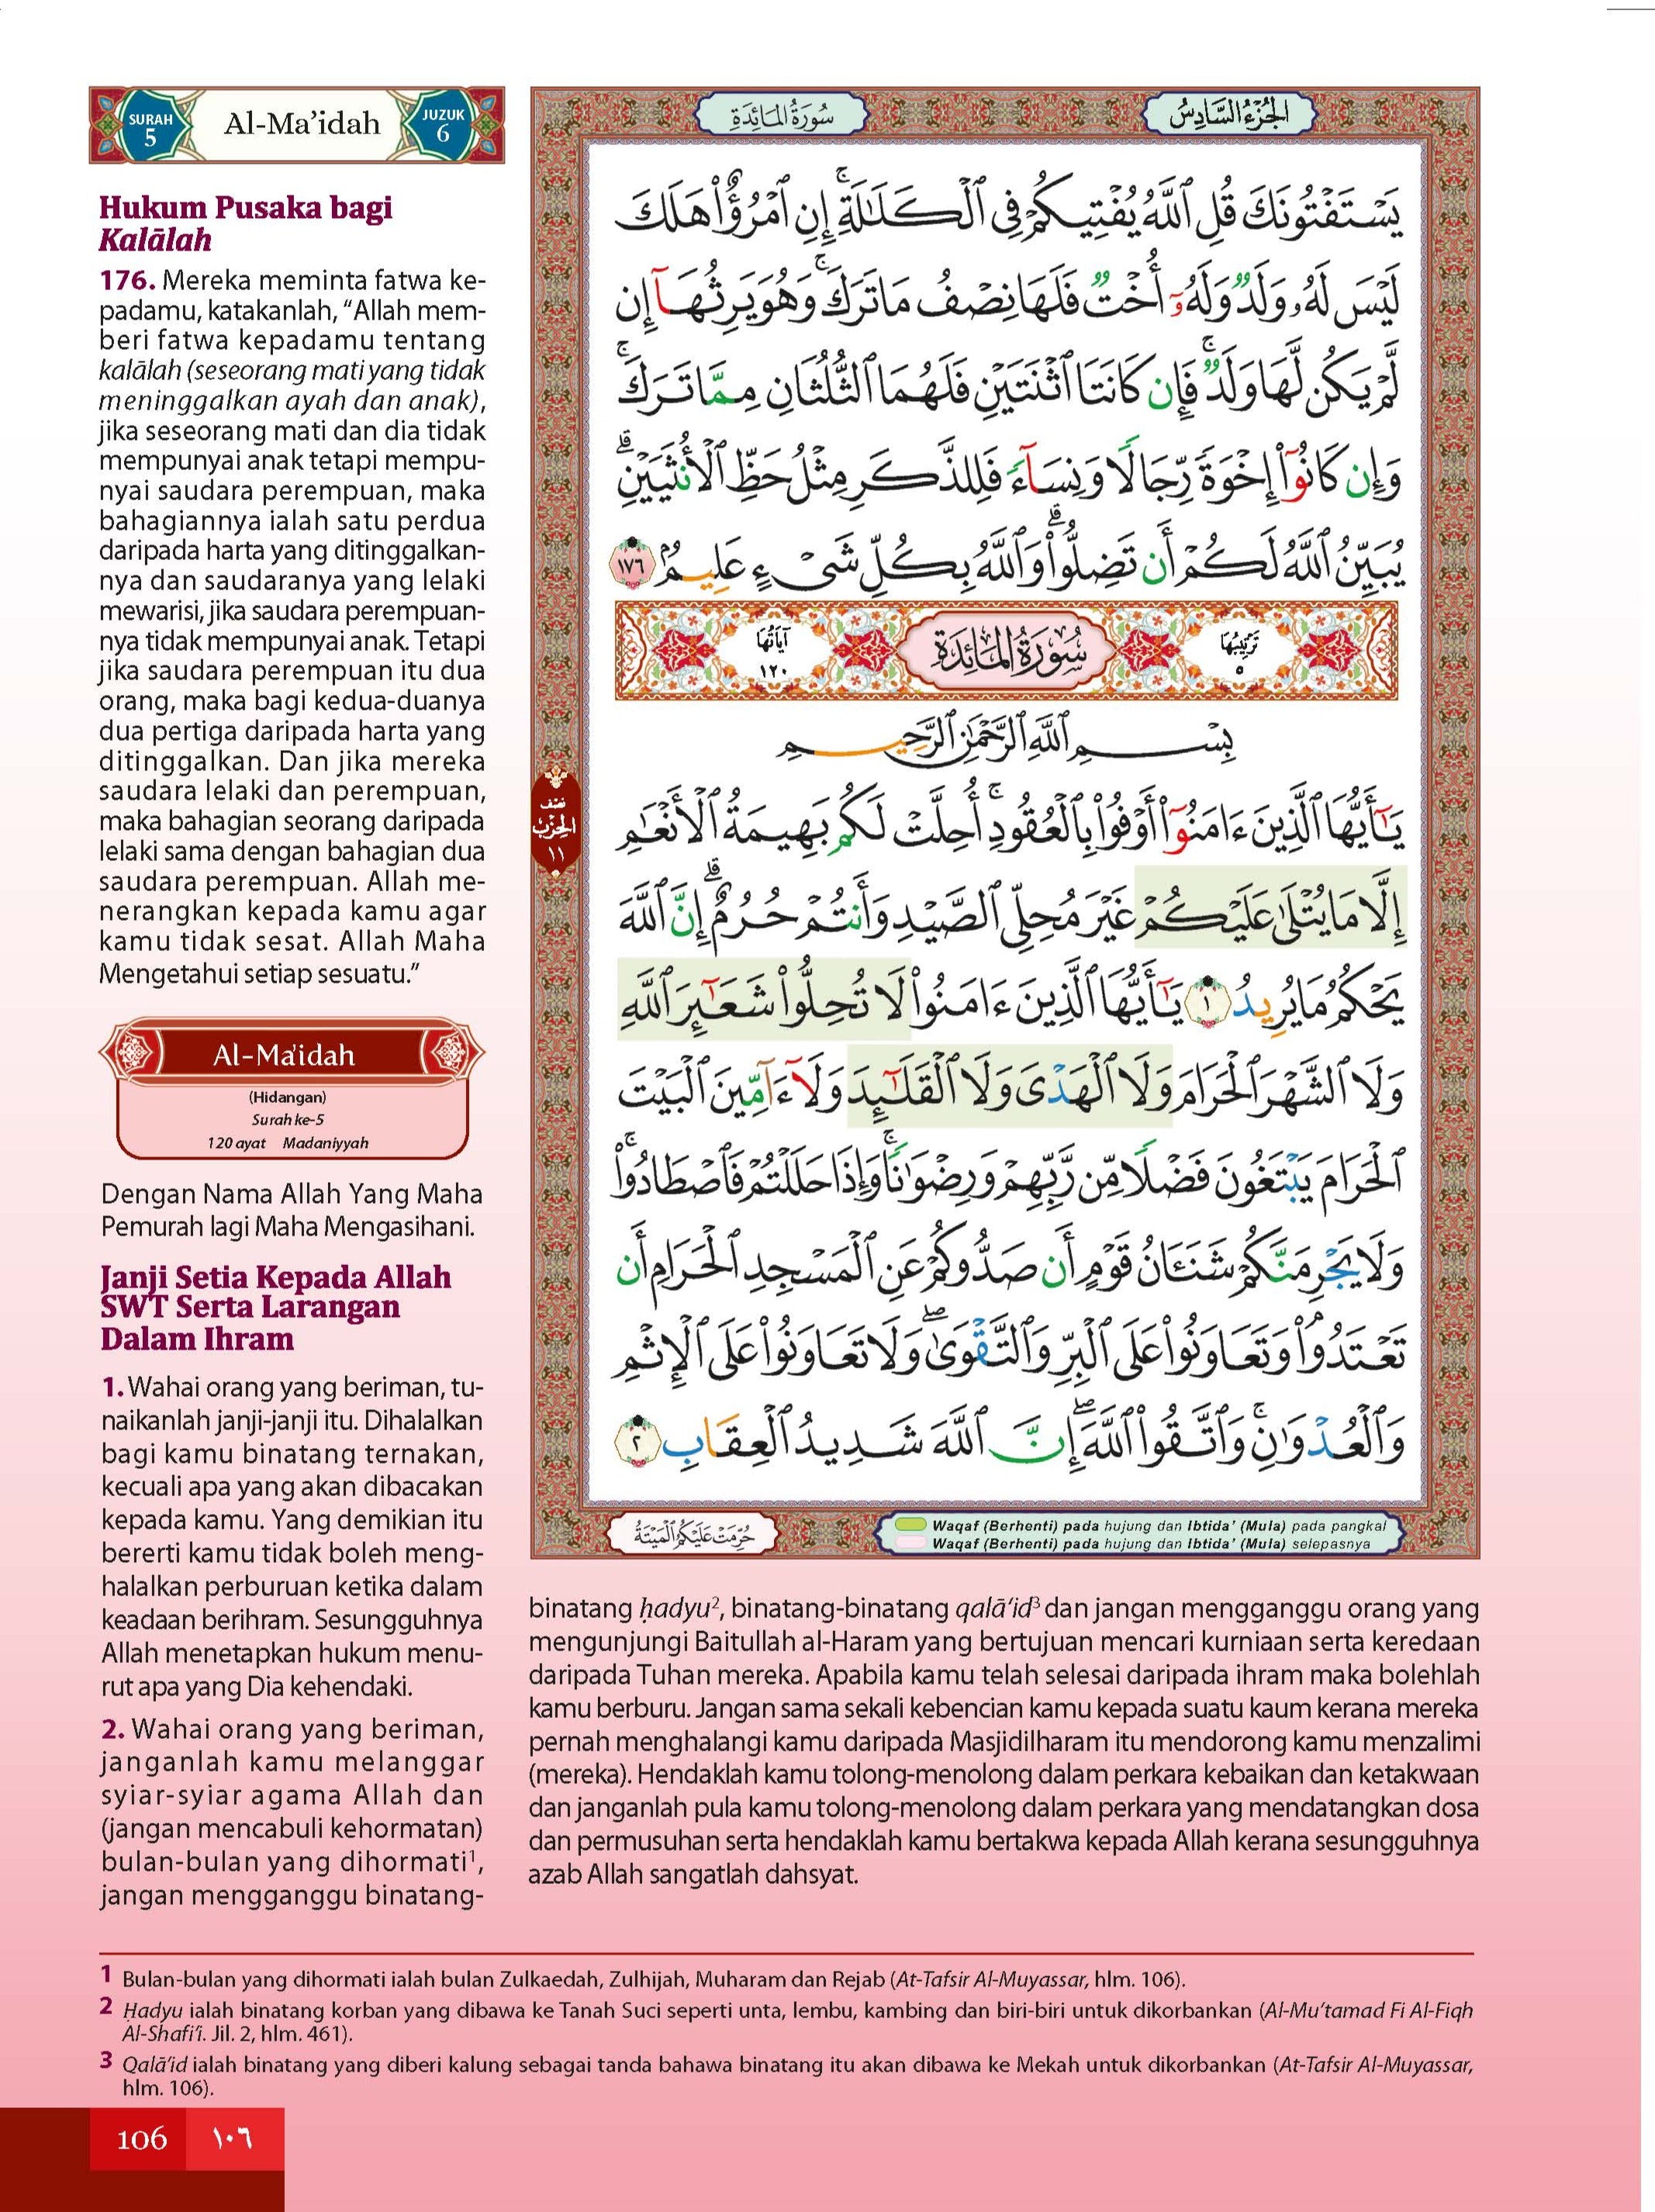 SURAH
5
Al-Ma’idah
JUZUK
6
Hukum Pusaka bagi
Kalālah
176. Mereka meminta fatwa ke-
padamu, katakanlah, “Allah mem-
beri fatwa kepadamu tentang
kalālah (seseorang mati yang tidak
meninggalkan ayah dan anak),
jika seseorang mati dan dia tidak
mempunyai anak tetapi mempu-
nyai saudara perempuan, maka
bahagiannya ialah satu perdua
daripada harta yang ditinggalkan-
nya dan saudaranya yang lelaki
mewarisi, jika saudara perempuan-
nya tidak mempunyai anak. Tetapi
jika saudara perempuan itu dua
orang, maka bagi kedua-duanya
dua pertiga daripada harta yang
ditinggalkan. Dan jika mereka
saudara lelaki dan perempuan,
maka bahagian seorang daripada
lelaki sama dengan bahagian dua
saudara perempuan. Allah me-
nerangkan kepada kamu agar
kamu tidak sesat. Allah Maha
Mengetahui setiap sesuatu.”
Al-Ma’idah
(Hidangan)
Surah ke-5
120 ayat Madaniyyah
Dengan Nama Allah Yang Maha
Pemurah lagi Maha Mengasihani.
Janji Setia Kepada Allah
SWT Serta Larangan
Dalam Ihram
1. Wahai orang yang beriman, tu-
naikanlah janji-janji itu. Dihalalkan
bagi kamu binatang ternakan,
kecuali apa yang akan dibacakan
kepada kamu. Yang demikian itu
bererti kamu tidak boleh meng-
halalkan perburuan ketika dalam
keadaan berihram. Sesungguhnya
Allah menetapkan hukum menu-
rut apa yang Dia kehendaki.
2. Wahai orang yang beriman,
janganlah kamu melanggar
syiar-syiar agama Allah dan
(jangan mencabuli kehormatan)
bulan-bulan yang dihormati¹,
jangan mengganggu binatang-
الجُزْءُ السَّادِسُ
سُورَةُ المَائِدَةِ
يَسْتَفْتُونَكَ قُلِ ٱللَّهُ يُفْتِيكُمْ فِى ٱلْكَلَـٰلَةِ ۚ إِنِ ٱمْرُؤٌا۟ هَلَكَ
لَيْسَ لَهُۥ وَلَدٌ وَلَهُۥٓ أُخْتٌ فَلَهَا نِصْفُ مَا تَرَكَ ۚ وَهُوَ يَرِثُهَآ إِن
لَّمْ يَكُن لَّهَا وَلَدٌ ۚ فَإِن كَانَتَا ٱثْنَتَيْنِ فَلَهُمَا ٱلثُّلُثَانِ مِمَّا تَرَكَ ۚ
وَإِن كَانُوٓا۟ إِخْوَةً رِّجَالًا وَنِسَآءً فَلِلذَّكَرِ مِثْلُ حَظِّ ٱلْأُنثَيَيْنِ ۗ
يُبَيِّنُ ٱللَّهُ لَكُمْ أَن تَضِلُّوا۟ ۗ وَٱللَّهُ بِكُلِّ شَىْءٍ عَلِيمٌۢ ١٧٦
تَرْتِيبُهَا ٥
سُورَةُ المَائِدَةِ
آيَاتُهَا ١٢٠
بِسْمِ ٱللَّهِ ٱلرَّحْمَـٰنِ ٱلرَّحِيمِ
يَـٰٓأَيُّهَا ٱلَّذِينَ ءَامَنُوٓا۟ أَوْفُوا۟ بِٱلْعُقُودِ ۚ أُحِلَّتْ لَكُم بَهِيمَةُ ٱلْأَنْعَـٰمِ
إِلَّا مَا يُتْلَىٰ عَلَيْكُمْ غَيْرَ مُحِلِّى ٱلصَّيْدِ وَأَنتُمْ حُرُمٌ ۗ إِنَّ ٱللَّهَ
يَحْكُمُ مَا يُرِيدُ ١ يَـٰٓأَيُّهَا ٱلَّذِينَ ءَامَنُوا۟ لَا تُحِلُّوا۟ شَعَـٰٓئِرَ ٱللَّهِ
وَلَا ٱلشَّهْرَ ٱلْحَرَامَ وَلَا ٱلْهَدْىَ وَلَا ٱلْقَلَـٰٓئِدَ وَلَآ ءَآمِّينَ ٱلْبَيْتَ
ٱلْحَرَامَ يَبْتَغُونَ فَضْلًا مِّن رَّبِّهِمْ وَرِضْوَٰنًا ۚ وَإِذَا حَلَلْتُمْ فَٱصْطَادُوا۟ ۚ
وَلَا يَجْرِمَنَّكُمْ شَنَـَٔانُ قَوْمٍ أَن صَدُّوكُمْ عَنِ ٱلْمَسْجِدِ ٱلْحَرَامِ أَن
تَعْتَدُوا۟ ۘ وَتَعَاوَنُوا۟ عَلَى ٱلْبِرِّ وَٱلتَّقْوَىٰ ۖ وَلَا تَعَاوَنُوا۟ عَلَى ٱلْإِثْمِ
وَٱلْعُدْوَٰنِ ۚ وَٱتَّقُوا۟ ٱللَّهَ ۖ إِنَّ ٱللَّهَ شَدِيدُ ٱلْعِقَابِ ٢
نصف
الحزب
١١
حُرِّمَتْ عَلَيْكُمُ الْمَيْتَةُ
Waqaf (Berhenti) pada hujung dan Ibtida’ (Mula) pada pangkal
Waqaf (Berhenti) pada hujung dan Ibtida’ (Mula) selepasnya
binatang ḥadyu², binatang-binatang qalā’id³ dan jangan mengganggu orang yang
mengunjungi Baitullah al-Haram yang bertujuan mencari kurniaan serta keredaan
daripada Tuhan mereka. Apabila kamu telah selesai daripada ihram maka bolehlah
kamu berburu. Jangan sama sekali kebencian kamu kepada suatu kaum kerana mereka
pernah menghalangi kamu daripada Masjidilharam itu mendorong kamu menzalimi
(mereka). Hendaklah kamu tolong-menolong dalam perkara kebaikan dan ketakwaan
dan janganlah pula kamu tolong-menolong dalam perkara yang mendatangkan dosa
dan permusuhan serta hendaklah kamu bertakwa kepada Allah kerana sesungguhnya
azab Allah sangatlah dahsyat.
1 Bulan-bulan yang dihormati ialah bulan Zulkaedah, Zulhijah, Muharam dan Rejab (At-Tafsir Al-Muyassar, hlm. 106).
2 Ḥadyu ialah binatang korban yang dibawa ke Tanah Suci seperti unta, lembu, kambing dan biri-biri untuk dikorbankan (Al-Mu’tamad Fi Al-Fiqh
Al-Shafi’i. Jil. 2, hlm. 461).
3 Qalā’id ialah binatang yang diberi kalung sebagai tanda bahawa binatang itu akan dibawa ke Mekah untuk dikorbankan (At-Tafsir Al-Muyassar,
hlm. 106).
106 ١٠٦